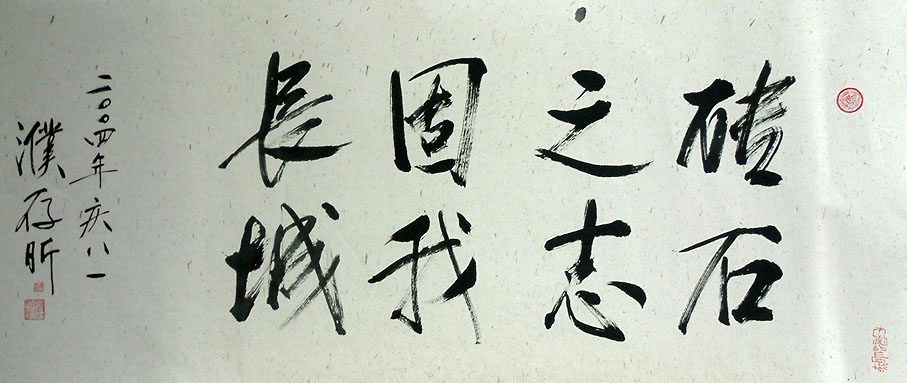 碴石
之志
固我
長城
二〇〇四年庆八一
濮存昕